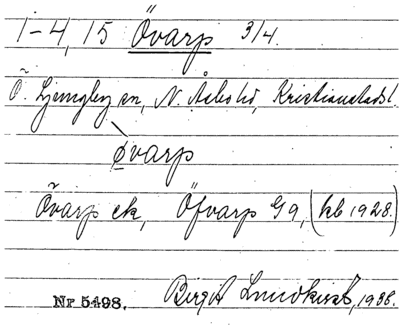 1-4, 15 Övarp 3/4.
Ö. Ljungby sn, N. Åsbo hd, Kristianstads l.
øvarp
Övarp ek, Öfvarp G9, (kb 1928.)
Nr 5498. Birgit Lundkvist, 1936.